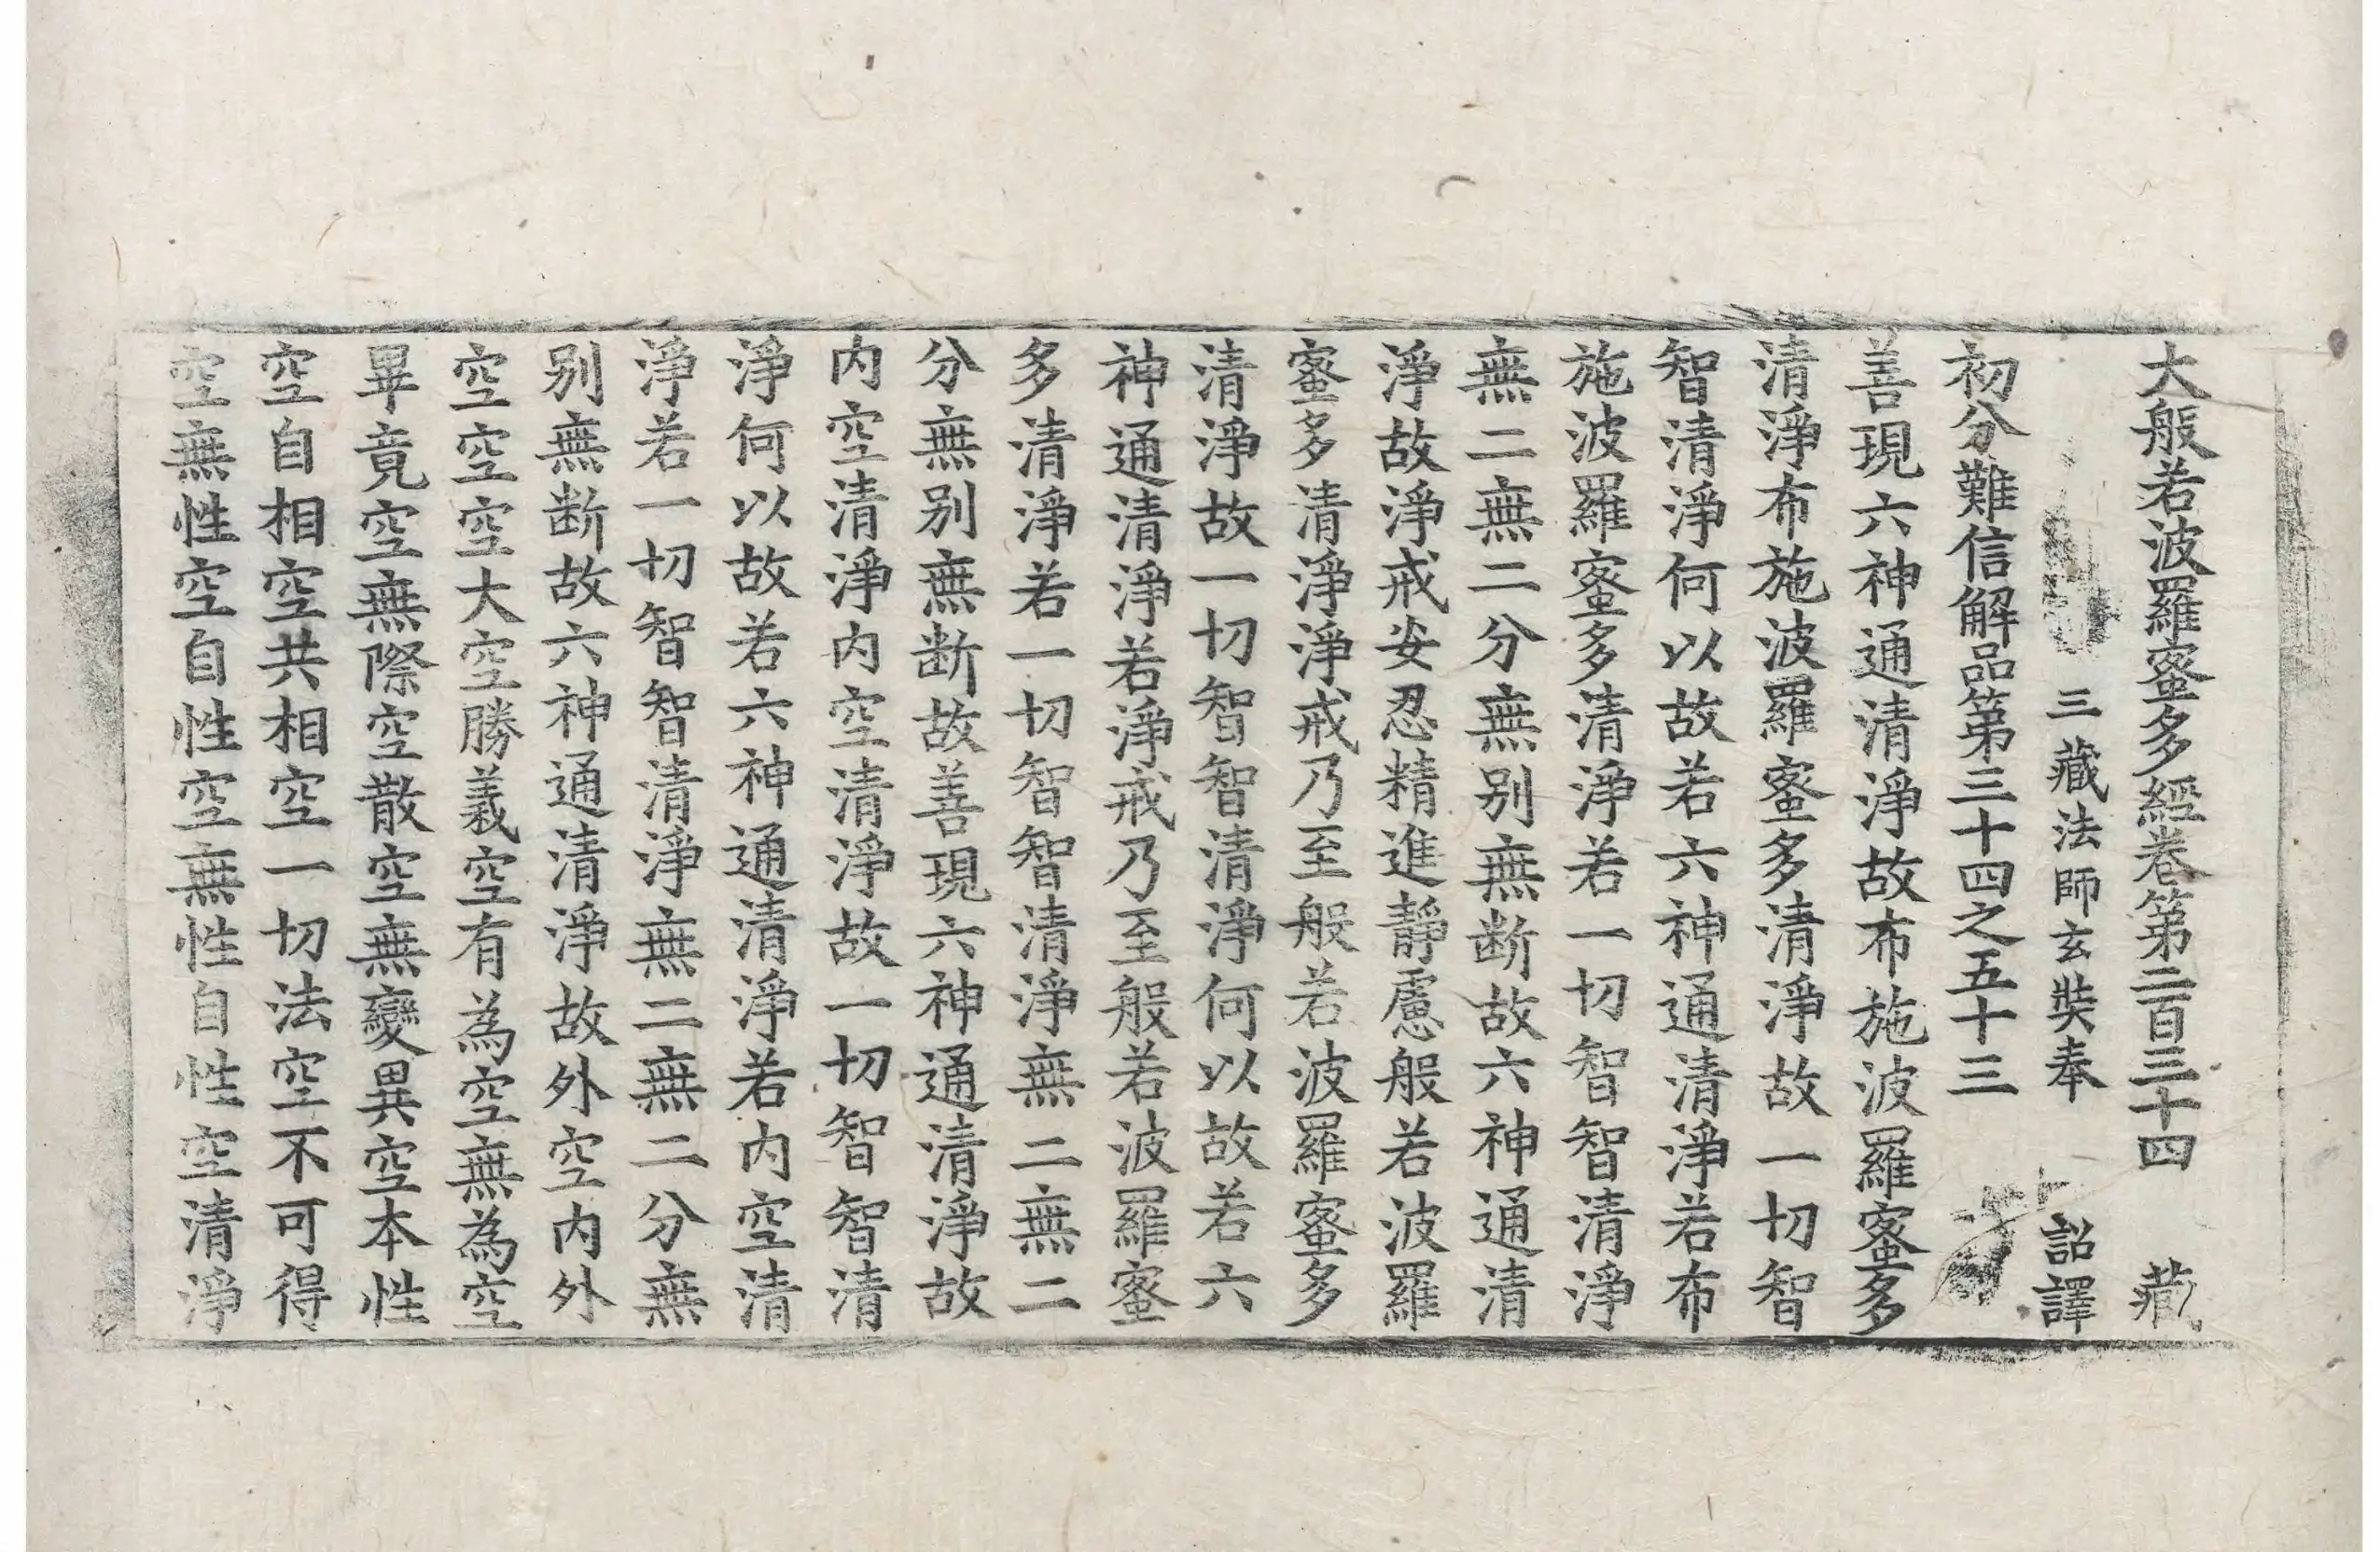 大般若波羅蜜多經卷第二百三十四　藏
三藏法師玄奘奉　詔譯
初分難信解品第三十四之五十三
善現六神通清淨故布施波羅蜜多
清淨布施波羅蜜多清淨故一切智
智清淨何以故若六神通清淨若布
施波羅蜜多清淨若一切智智清淨
無二無二分無別無断故六神通清
淨故淨戒安忍精進靜慮般若波羅
蜜多清淨淨戒乃至般若波羅蜜多
清淨故一切智智清淨何以故若六
神通清淨若淨戒乃至般若波羅蜜
多清淨若一切智智清淨無二無二
分無別無断故善現六神通清淨故
内空清淨内空清淨故一切智智清
淨何以故若六神通清淨若内空清
淨若一切智智清淨無二無二分無
別無断故六神通清淨故外空内外
空空空大空勝義空有為空無為空
畢竟空無際空散空無變異空本性
空自相空共相空一切法空不可得
空無性空自性空無性自性空清淨